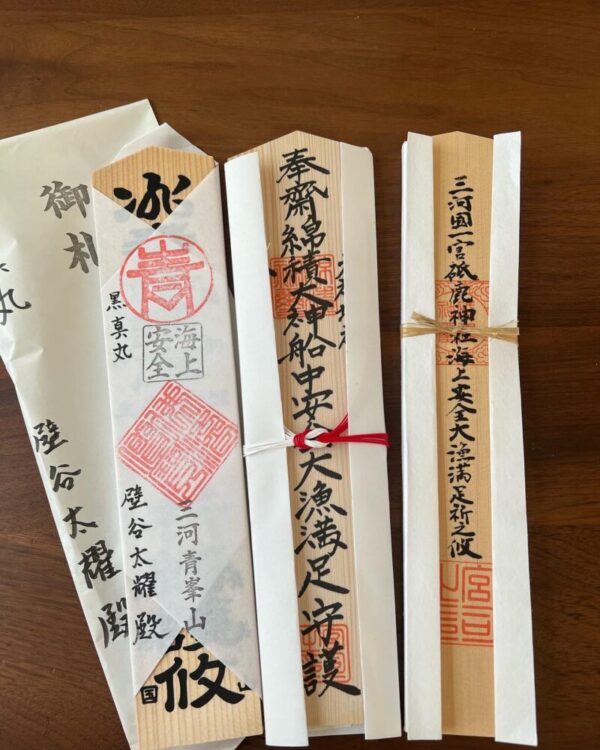 御札
丸
壁谷太耀殿
黒真丸
海上
安全
壁谷太耀殿
三河青峯山
攸
国
奉齋綿積大神船中安全大漁満足守護
三河国一宮砥鹿神社海上安全大漁満足祈之攸